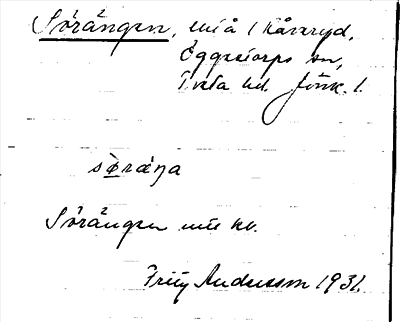 Sörängen, miå i Kåveryd,
Öggestorps sn,
Tveta hd. Jönk. l.
sø̀räŋa
Sörängen mie kv.
Fritz Andersson 1931.